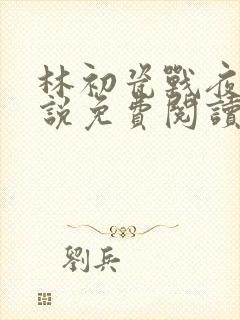 林初瓷戰夜
說免費閱讀
劉兵